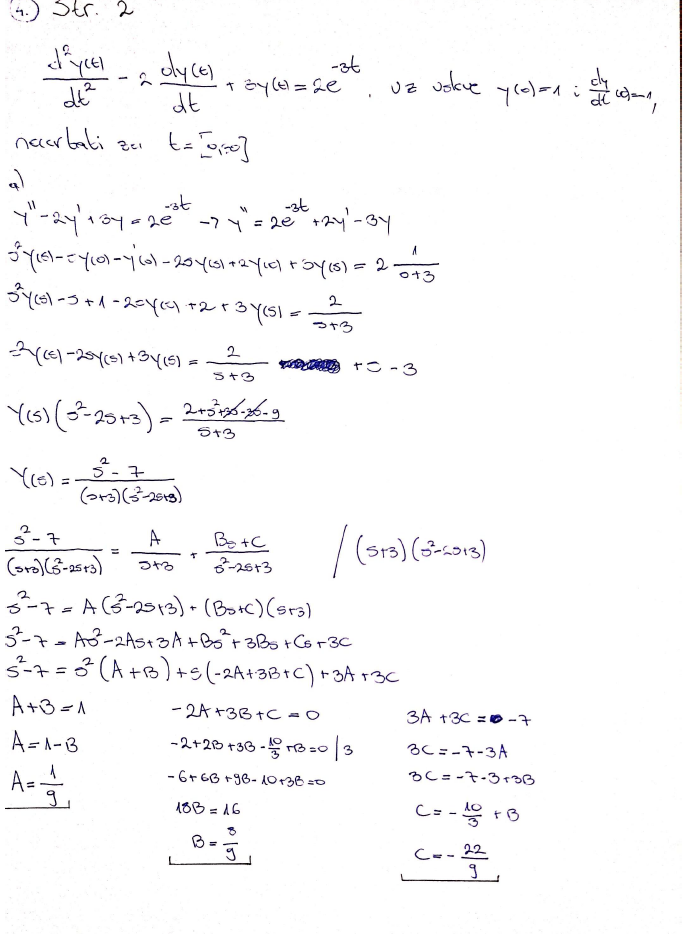 4.) Str. 2
d²y(t)/dt² - 2 dy(t)/dt + 3y(t) = 2e^-3t, uz uslove y(0)=1 i dy/dt(0)=-1,
nacrtati za t=[0,10]
a)
y'' - 2y' + 3y = 2e^-3t → y'' = 2e^-3t + 2y' - 3y
s²Y(s) - sy(0) - y'(0) - 2sY(s) + 2y(0) + 3Y(s) = 2 1/(s+3)
s²Y(s) - s + 1 - 2sY(s) + 2 + 3Y(s) = 2/(s+3)
s²Y(s) - 2sY(s) + 3Y(s) = 2/(s+3) + s - 3
Y(s)(s² - 2s + 3) = (2+s²+3s-3s-9)/(s+3)
Y(s) = (s² - 7)/((s+3)(s²-2s+3))
(s² - 7)/((s+3)(s²-2s+3)) = A/(s+3) + (Bs+C)/(s²-2s+3) / (s+3)(s²-2s+3)
s²-7 = A(s²-2s+3) + (Bs+C)(s+3)
s²-7 = As²-2As+3A+Bs²+3Bs+Cs+3C
s²-7 = s²(A+B)+s(-2A+3B+C)+3A+3C
A+B=1
A=1-B
A=1/9
-2A+3B+C=0
-2+2B+3B-10/3+B=0 |3
-6+6B+9B-10+3B=0
18B=16
B=8/9
3A+3C=-7
3C=-7-3A
3C=-7-3+3B
C=-10/3+B
C=-22/9